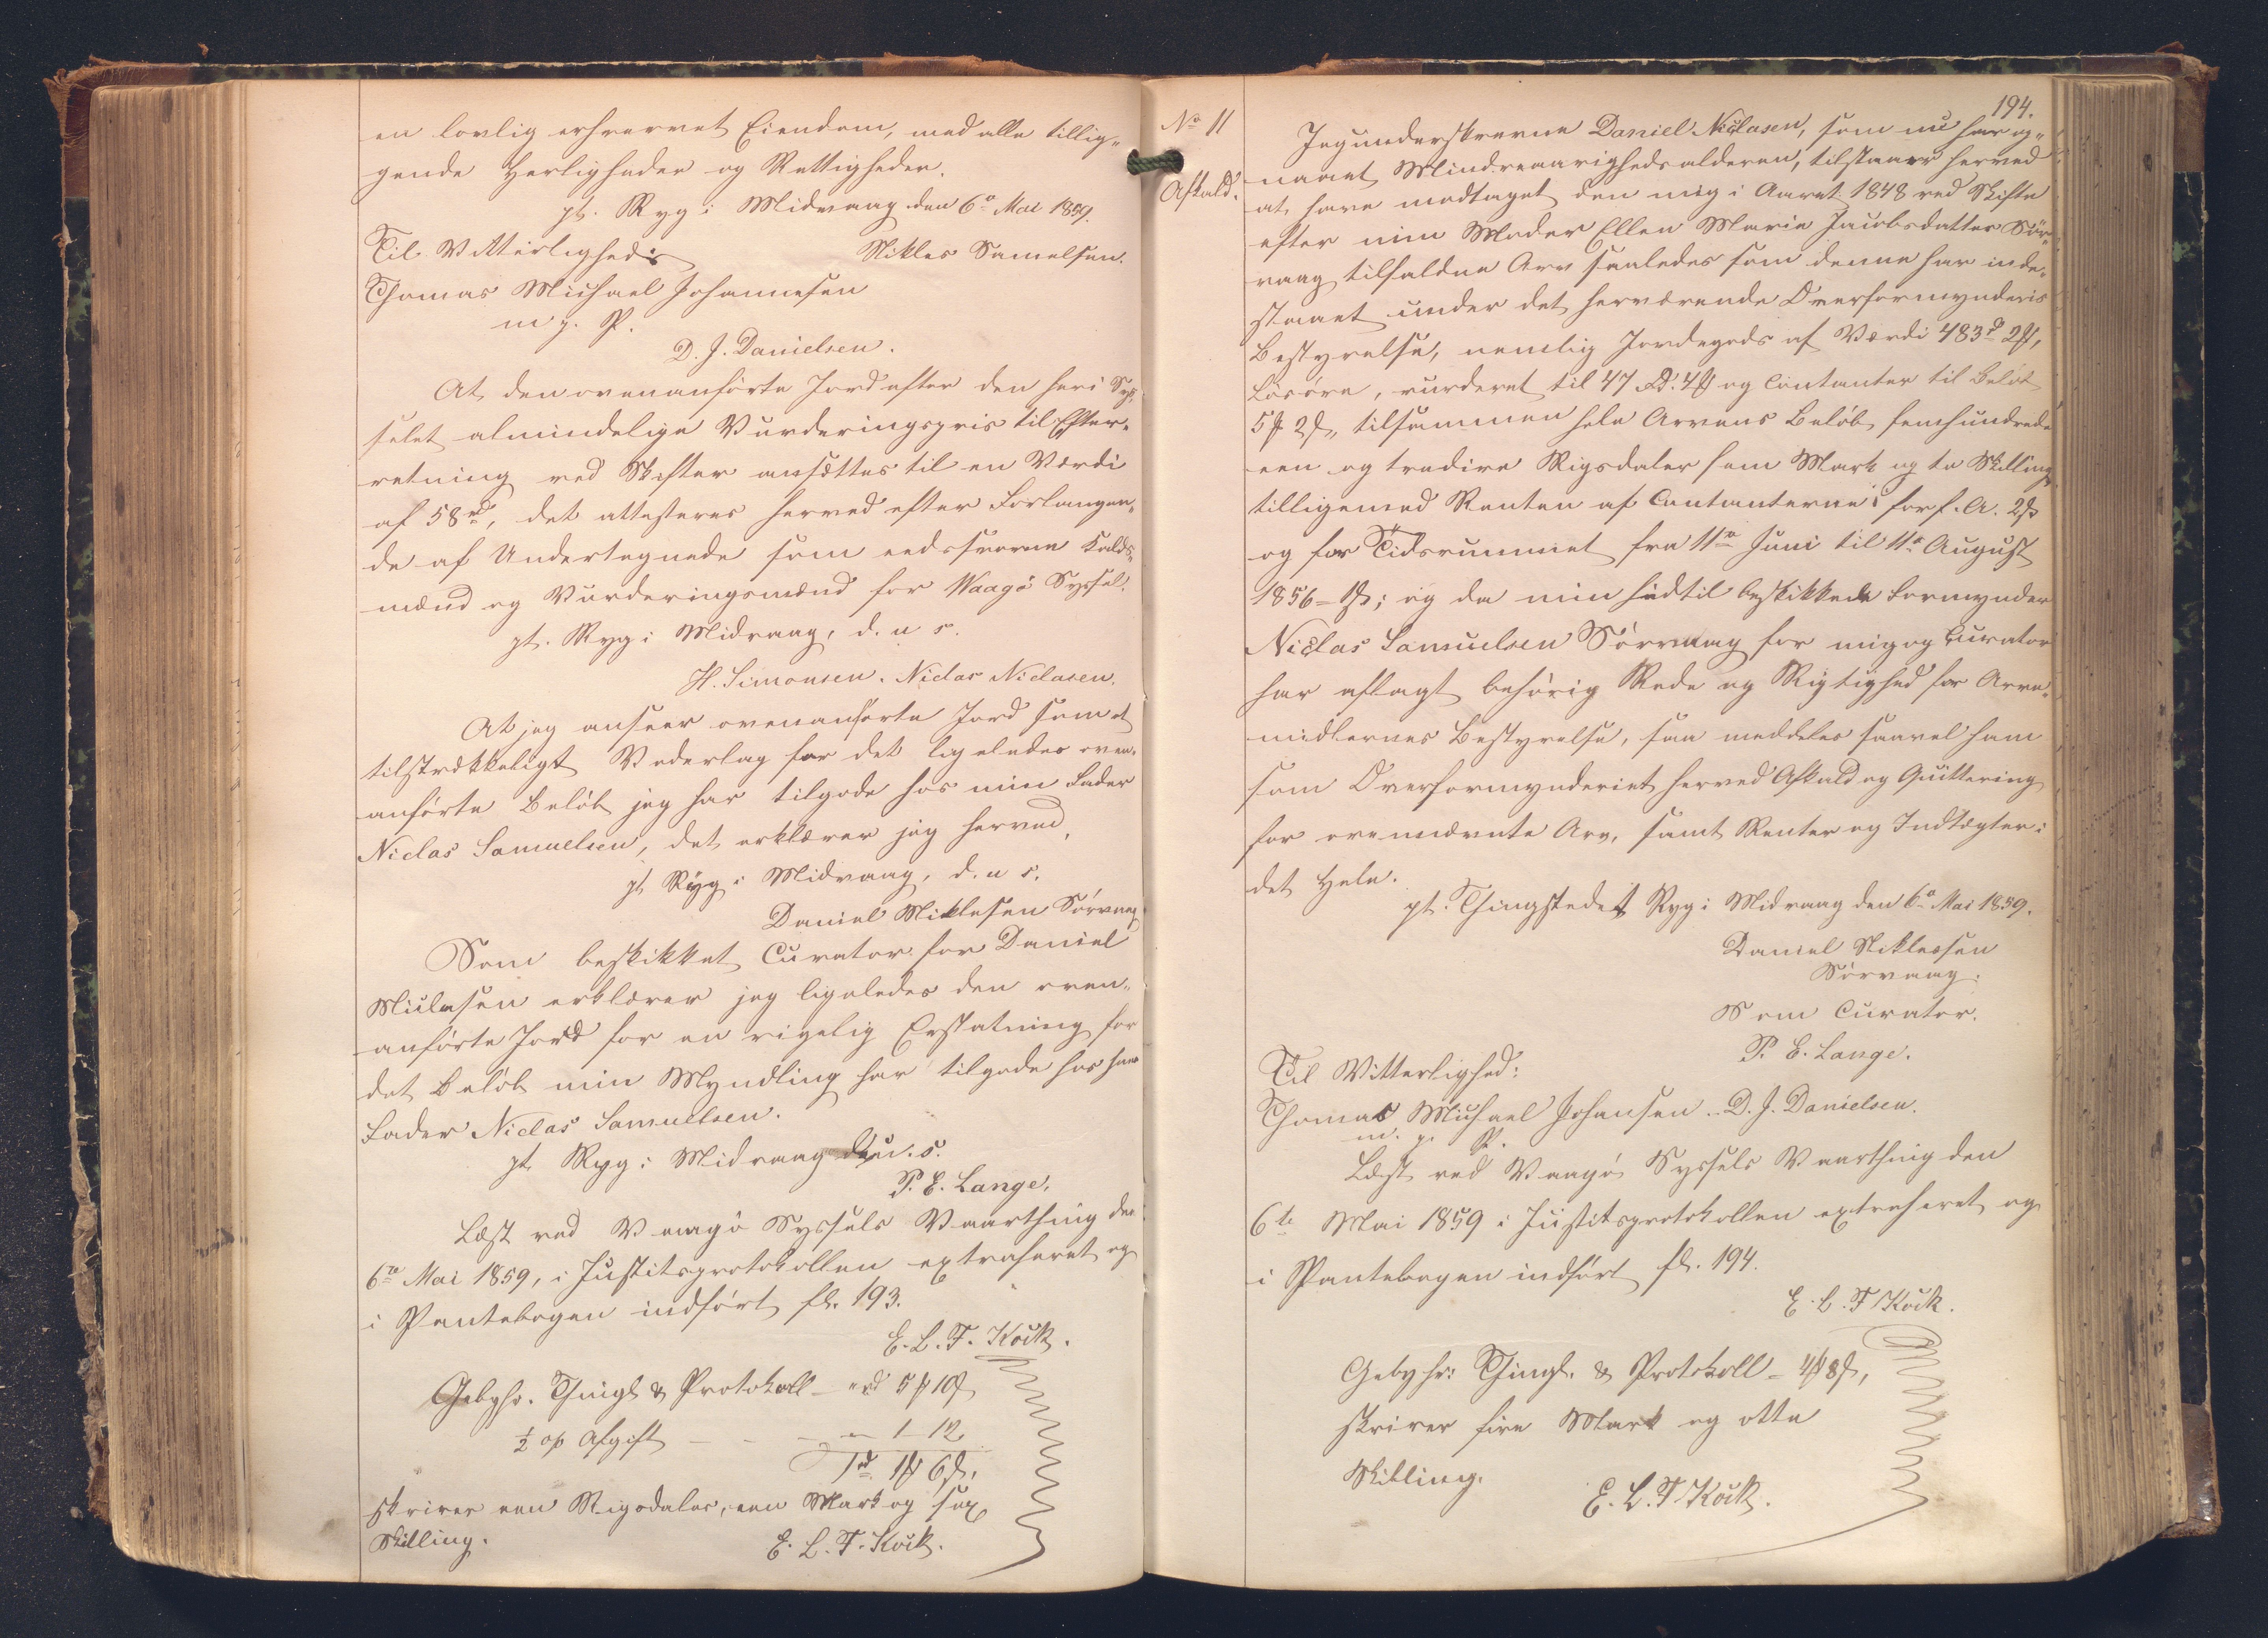 en lovlig erhvervet Eiendom, med alle tillig-
gende Herligheder og Rettigheder.
pt. Ryg i Midvaag den 6te Mai 1859.
Til Vitterlighed: Nikles Samelsen.
Thomas Michael Johannesen
m. p. P.
D. J. Danielsen.
At den ovenanførte Jord efter den her i Sys-
selet almindelige Vurderingspris til Efter-
retning ved Skifter ansættes til en Værdi
af 58 rd, det attesteres herved efter Forlangen-
de af Undertegnede som eedssvorne Kalds-
mænd og Vurderingsmænd for Waagø Syssel.
pt. Ryg i Midvaag, d. u. s.
H. Simonsen. Niclas Niclasen.
At jeg anseer ovenanførte Jord som et
tilstrækkeligt Vederlag for det ligeledes oven-
anførte Beløb jeg har tilgode hos min Fader
Niclas Samuelsen, det erklærer jeg herved.
pt. Ryg i Midvaag, d. u. s.
Daniel Niklesen Sörvaag
Som beskikket Curator for Daniel
Niclasen erklærer jeg ligeledes den oven-
anførte Jord for en rigelig Erstatning for
det Beløb min Myndling har tilgode hos sin
Fader Niclas Samuelsen.
pt. Ryg i Midvaag d. u. s.
P. E. Lange.
Læst ved Vaagø Syssels Vaarthing den
6te Mai 1859, i Justitsprotokollen extraheret og
i Pantebogen indført fl. 193.
E. L. T. Kock.
Gebyhr. Thingl. & Protokoll - " rd 5 ₥ 10 ß
½ op Afgift - - - " 1 12
1 rd 1 ₥ 6 ß.
skriver een Rigsdaler, een Mark og sex
Skilling. E. L. T. Kock.
194.
No 11
Afkald.
Jeg underskrevne Daniel Niclasen, som nu har op-
naaet Mindreaarighedsalderen, tilstaaer herved
at have modtaget den mig i Aaret 1848 ved Skifte
efter min Moder Ellen Marie Jacobsdatter Sör-
vaag tilfaldne Arv saaledes som denne har inde-
staaet under det herværende Overformynderies
Bestyrelse, nemlig Jordegods af Værdi 483 rd 2 ₥,
Løsøre, vurderet til 47 Rd. 4 ₥ og Contanter til Beløb
5 ₥ 2 ß, tilsammen hele Arvens Beløb femhundrede
een og tredive Rigsdaler fem Mark og to Skilling
tilligemed Renten af Contanterne for f. A. 2 ß
og for Tidsrummet fra 11te Juni til 11te August
1856 = 1 ß; og da min hidtil beskikkede Formynder
Niclas Samuelsen Sörvaag for mig og Curator
har aflagt behørig Rede og Rigtighed for Arve-
midlernes Bestyrelse, saa meddeles saavel ham
som Overformynderiet herved Afkald og Quittering
for ovennævnte Arv, samt Renter og Indtægter i
det Hele.
pt. Thingstedet Ryg i Midvaag den 6te Mai 1859.
Daniel Niklessen
Sörvaag.
Som Curator.
P. E. Lange.
Til Vitterlighed:
Thomas Michael Johansen. D. J. Danielsen.
m. p. P.
Læst ved Vaagø Syssels Vaarthing den
6te Mai 1859 i Justitsprotokollen extraheret og
i Pantebogen indført fl. 194.
E. L. T Kock.
Gebyhr: Thingl. & Protokoll = 4 ₥ 8 ß,
skriver fire Mark og otte
Skilling.
E. L. T Kock.